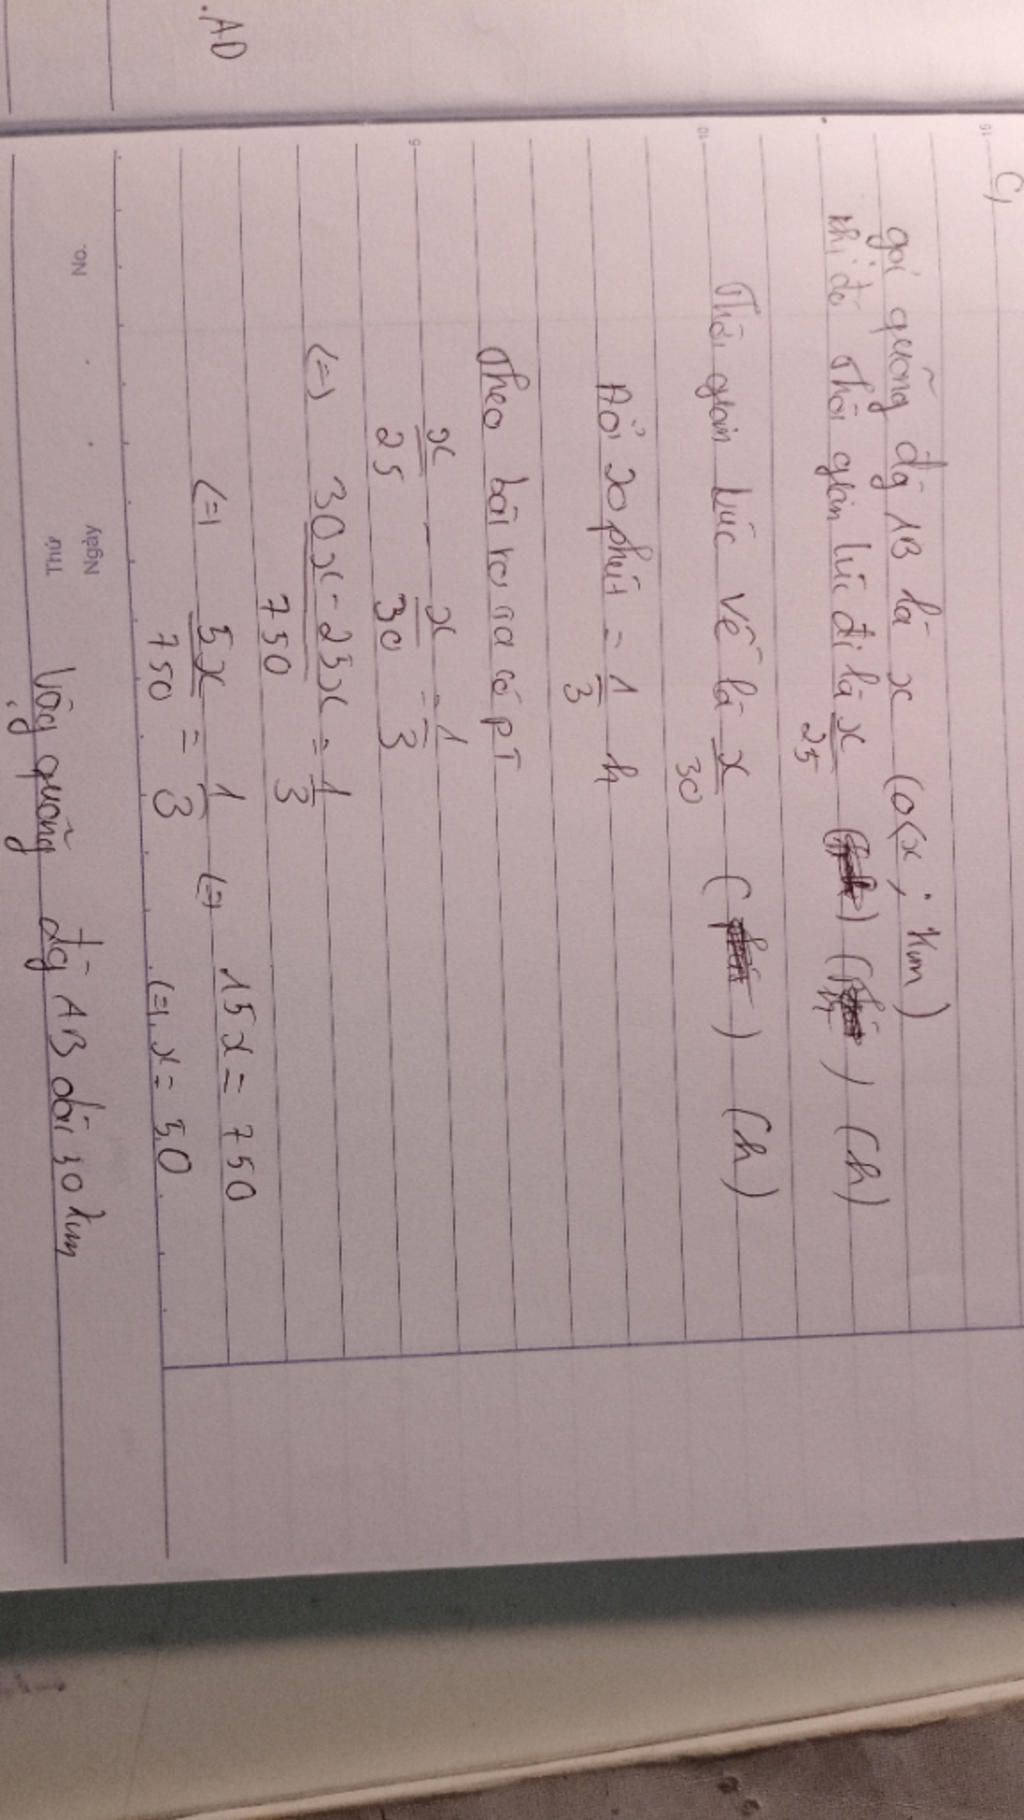 .AD
15
C,
gọi quãng đg AB là x (0<x; km)
khi đó thời gian lúc đi là x/25 (h)
10
Thời gian lúc về là x/30 (h)
Đổi 20 phút = 1/3 h
Theo bài ra ta có pT
5
x/25 - x/30 = 1/3
(=) 30x - 25x / 750 = 1/3
(=) 5x/750 = 1/3 (=) 15x = 750
(=) x = 50
No.
Ngày
Thứ
Vậy quãng đg AB dài 50 km